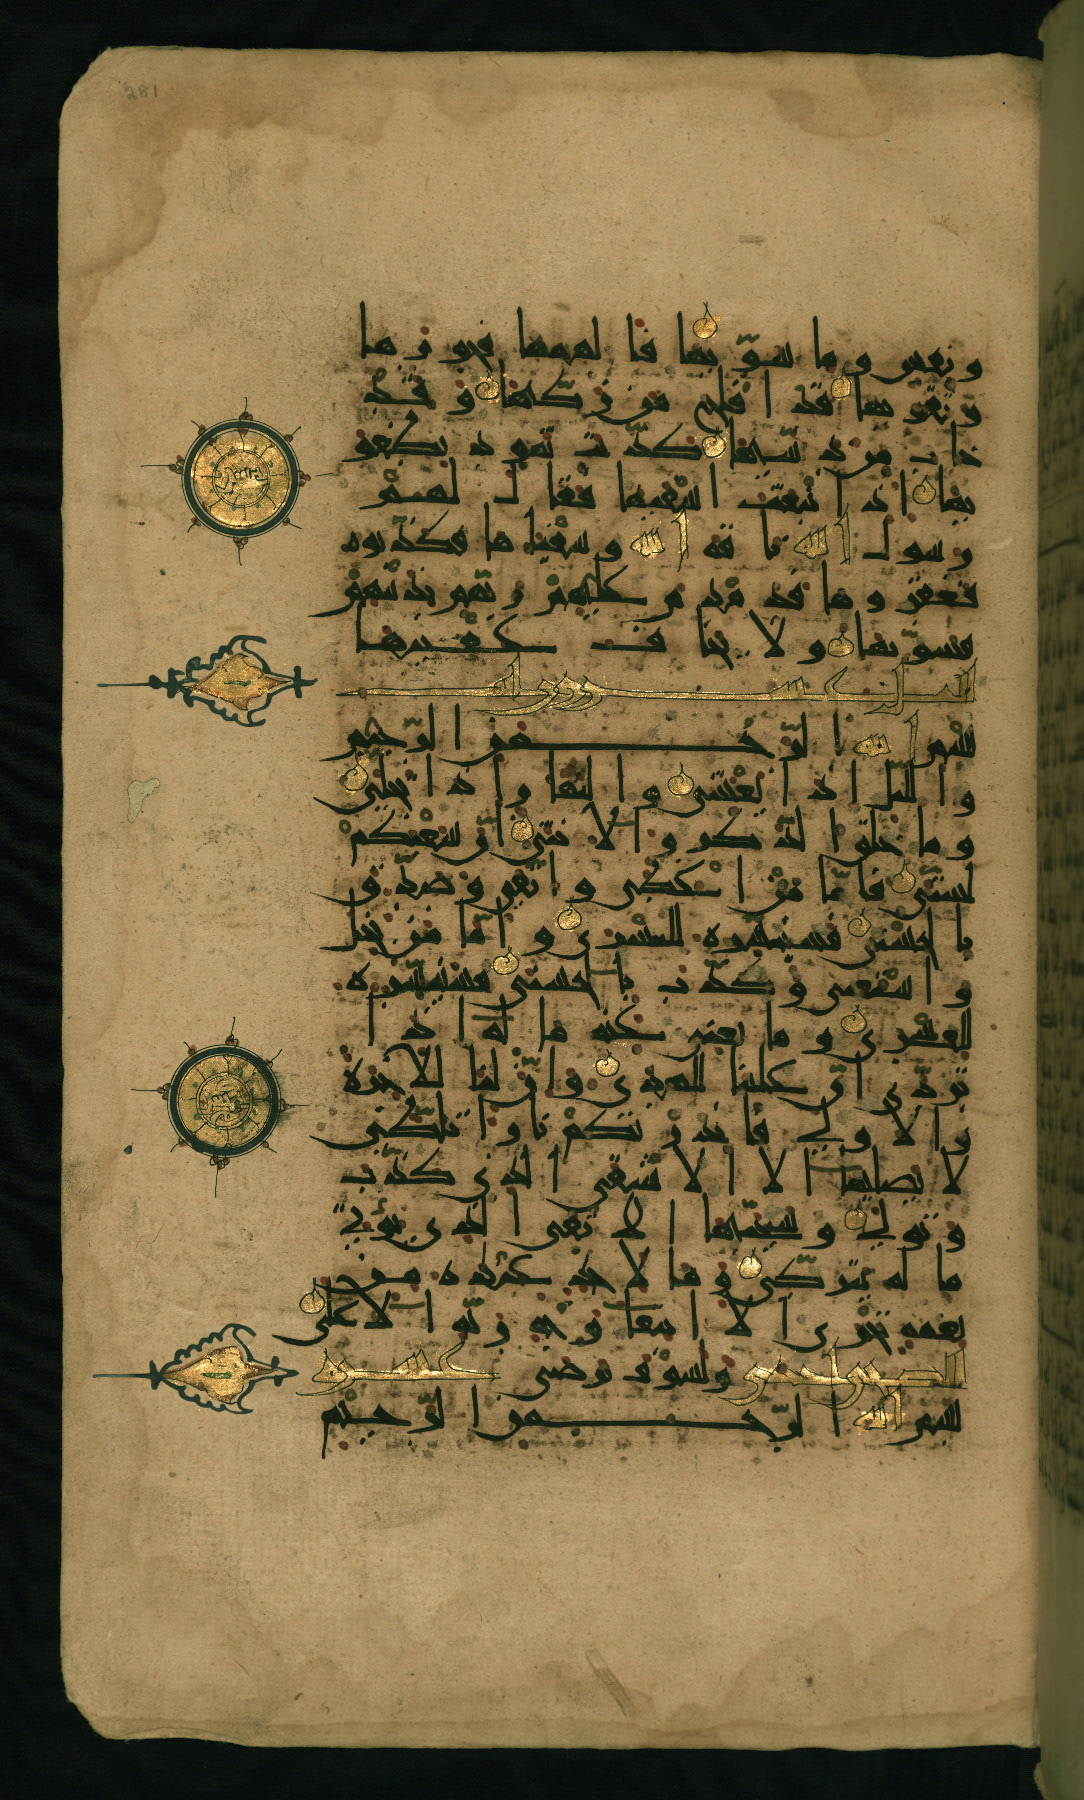 281
ونفس وما سوّيها فالهمها فجورها
وتقويها قد افلح من زكّيها وقد
خاب من دسّيها كذّبت ثمود بطغو
يها اذ انبعث اشقيها فقال لهم
رسول الله ناقة الله وسقيها فكذّبوه
فعقروها فدمدم عليهم ربّهم بذنبهم
فسوّيها ولا يخاف عقبيها
بسم الله الرّحمن الرّحيم
والّيل اذا يغشى والنهار اذا تجلّى
وما خلق الذّكر والانثى انّ سعيكم
لشتّى فامّا من اعطى واتّقى وصدّق
بالحسنى فسنيسّره لليسرى وامّا من بخل
واستغنى وكذّب بالحسنى فسنيسّره
للعسرى وما يغنى عنه ماله اذا
تردّى انّ علينا للهدى وانّ لنا للاخرة
والاولى فانذرتكم نارا تلظّى
لا يصليها الا الاشقى الذى كذّب
وتولّى وسيجنّبها الاتقى الذى يؤتى
ماله يتزكّى وما لاحد عنده من
نعمة تجزى الا ابتغا وجه ربّه الاعلى
ولسوف يرضى
بسم الله الرّحمن الرّحيم